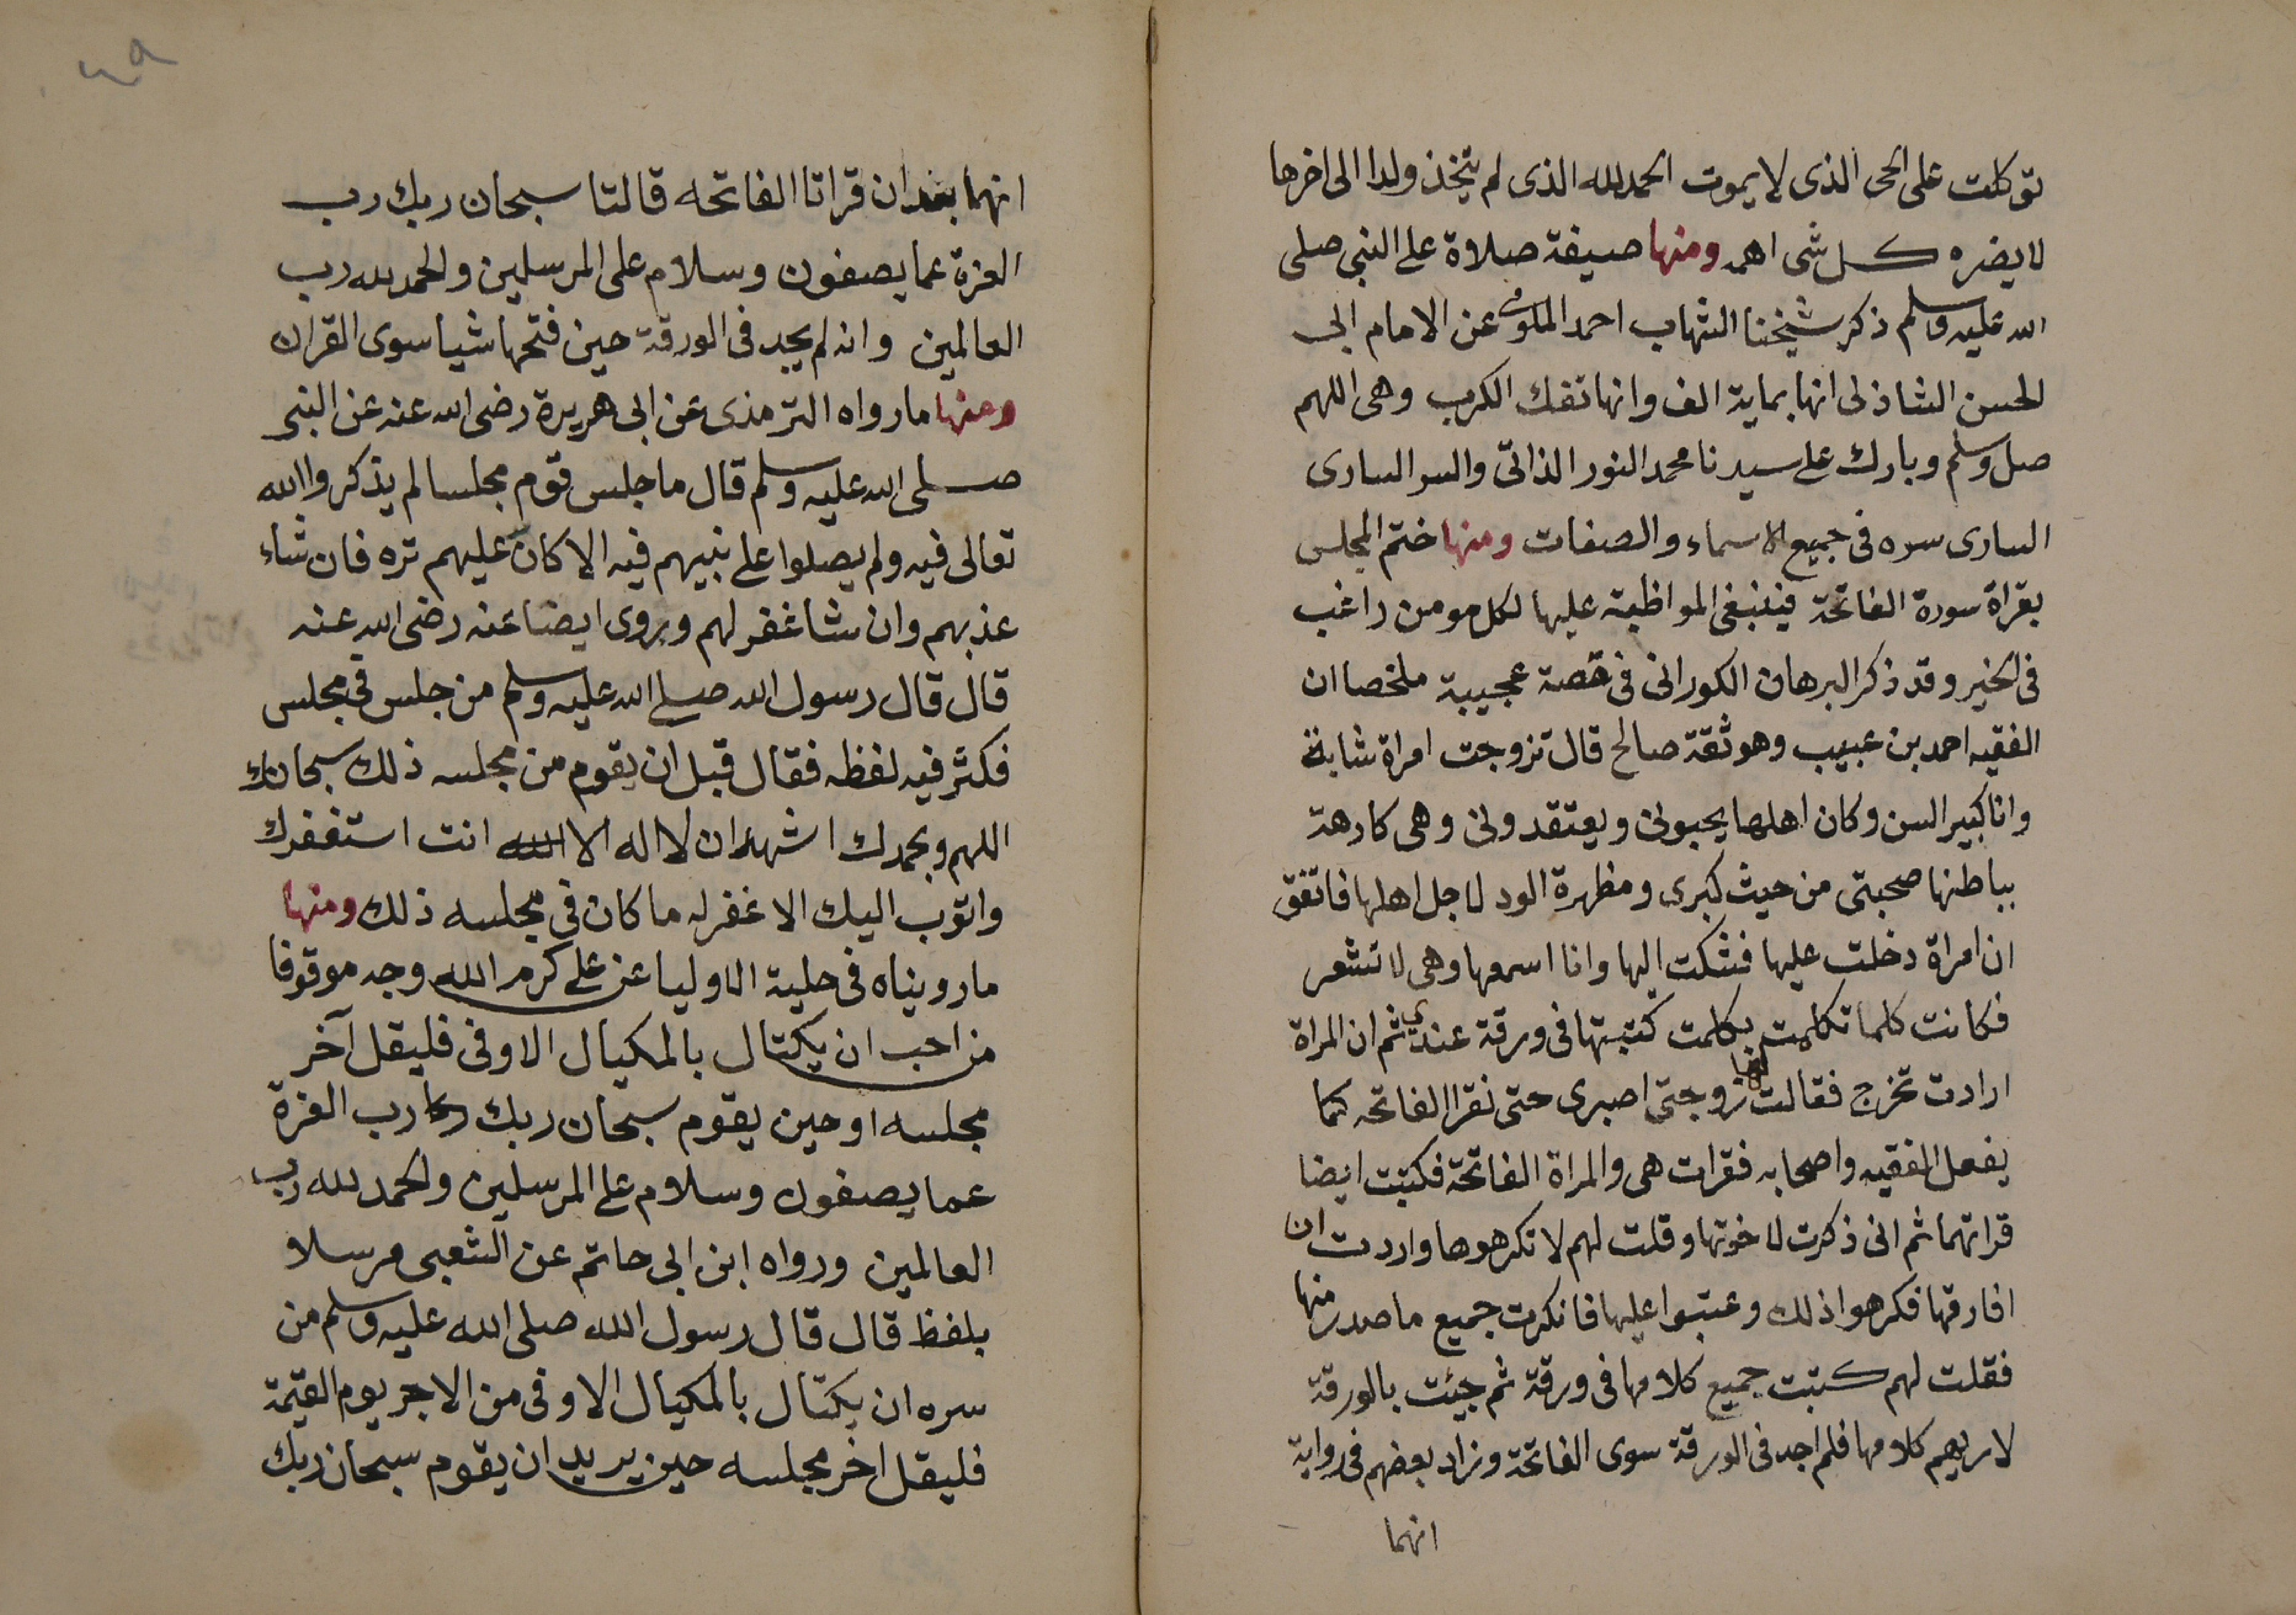 توكلت على الحى الذى لا يموت الحمد لله الذى لم يتخذ ولدا الى اخرها
لا يضره كل شى اهـ ومنها صيغة صلاة على النبى صلى
الله عليه وسلم ذكر شيخنا الشهاب احمد الملوى عن الامام ابى
الحسن الشاذلى انها بماية الف وانها تفك الكرب وهى اللهم
صل وسلم وبارك على سيدنا محمد النور الذاتى والسر السارى
السارى سره فى جميع الاسماء والصفات ومنها ختم المجلس
بقراة سورة الفاتحة فينبغى المواظبة عليها لكل مومن راغب
فى الخير وقد ذكر البرهان الكورانى فى قصة عجيبة ملخصا ان
الفقيه احمد بن عبيب وهو ثقة صالح قال تزوجت امراة شابة
وانا كبير السن وكان اهلها يحبونى ويعتقدونى وهى كارهة
بباطنها صحبتى من حيث كبرى ومظهرة الود لاجل اهلها فاتفق
ان امراة دخلت عليها فشكت اليها وانا اسمعها وهى لا تشعر
فكانت كلما تكلمت بكلمت كتبتها فى ورقة عندي ثم ان المراة
ارادت تخرج فقالت لها زوجتى اصبرى حتى نقرا الفاتحه كما
يفعل الفقيه واصحابه فقرات هى والمراة الفاتحة فكتبت ايضا
قراتهما ثم انى ذكرت لاخوتها وقلت لهم لا تكرهوها واردت ان
افارقها فكرهوا ذلك وعتبوا عليها فانكرت جميع ما صدر منها
فقلت لهم كتبت جميع كلامها فى ورقة ثم جيئت بالورقة
لاريهم كلامها فلم اجد فى الورقة سوى الفاتحة وزاد بعضهم فى رواية
انهما
انهما بعد ان قراتا الفاتحه قالتا سبحان ربك رب
العزة عما يصفون وسلام على المرسلين والحمد لله رب
العالمين وانه لم يجد فى الورقة حين فتحها شيا سوى القران
ومنها ما رواه الترمذى عن ابى هريرة رضى الله عنه عن النبى
صلى الله عليه وسلم قال ما جلس قوم مجلسا لم يذكروا الله
تعالى فيه ولم يصلوا على نبيهم فيه الا كان عليهم تره فان شاء
عذبهم وان شا غفر لهم وروى ايضا عنه رضى الله عنه
قال قال رسول الله صلى الله عليه وسلم من جلس فى مجلس
فكثر فيه لغظه فقال قبل ان يقوم من مجلسه ذلك سبحانك
اللهم وبحمدك اشهد ان لا اله الا الله انت استغفرك
واتوب اليك الا غفر له ما كان فى مجلسه ذلك ومنها
ما رويناه فى حلية الاوليا عن على كرم الله وجه موقوفا
من احب ان يكتال بالمكيال الاوفى فليقل آخر
مجلسه او حين يقوم سبحان ربك رب العزة
عما يصفون وسلام على المرسلين والحمد لله رب
العالمين ورواه ابن ابى حاتم عن الشعبى مرسلا
بلفظ قال قال رسول الله صلى الله عليه وسلم من
سره ان يكتال بالمكيال الاوفى من الاجر يوم القيمة
فليقل اخر مجلسه حين يريد ان يقوم سبحان ربك